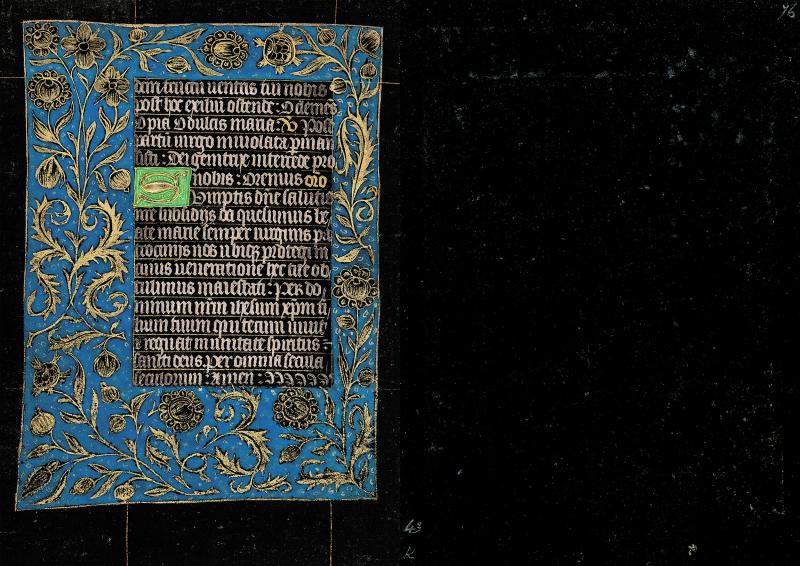 dom fructū uentris tui nobis
post hoc exiliū ostende : O clemēs
O pia O dulcis maria : Post
partū uirgo inuiolata pman
sisti : Dei genitrix intercede pro
nobis : Oremus oro
Sumptis dñe salutis
ne subsidijs da quesumus be
ate marie semper uirginis pa
trocinijs nos ubiqz protegi in
cuius ueneratione hec tue ob
tulimus maiestati : Per do
minum nr̄m ihesum xp̄m fi
lium tuum qui tecum uiuit
et regnat in unitate spiritus
sancti deus per omnia secula
seculorum : Amen :
76
43
K